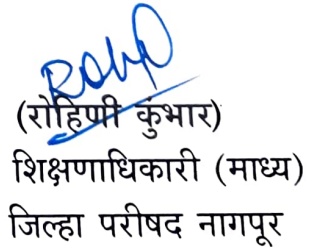 (रोहिणी कुंभार)
शिक्षणाधिकारी (माध्य)
जिल्हा परीषद नागपूर